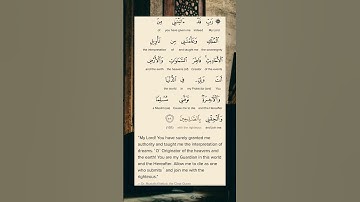 رَبِّ قَدْ ءَاتَيْتَنِى مِنَ
of you have given me indeed My Lord
ٱلْمُلْكِ وَعَلَّمْتَنِى مِن تَأْوِيلِ
the interpretation of and taught me the sovereignty
ٱلْأَحَادِيثِ فَاطِرَ ٱلسَّمَٰوَٰتِ وَٱلْأَرْضِ
and the earth the heavens Creator of the events
أَنتَ وَلِىِّۦ فِى ٱلدُّنْيَا
the world in my Protector You
وَٱلْءَاخِرَةِ تَوَفَّنِى مُسْلِمًا
a Muslim cause me to die and the Hereafter
وَأَلْحِقْنِى بِٱلصَّٰلِحِينَ
with the righteous and join me
"My Lord! You have surely granted me
authority and taught me the interpretation of
dreams. ˹O˺ Originator of the heavens and
the earth! You are my Guardian in this world
and the Hereafter. Allow me to die as one
who submits and join me with the
righteous."
— Dr. Mustafa Khattab, the Clear Quran